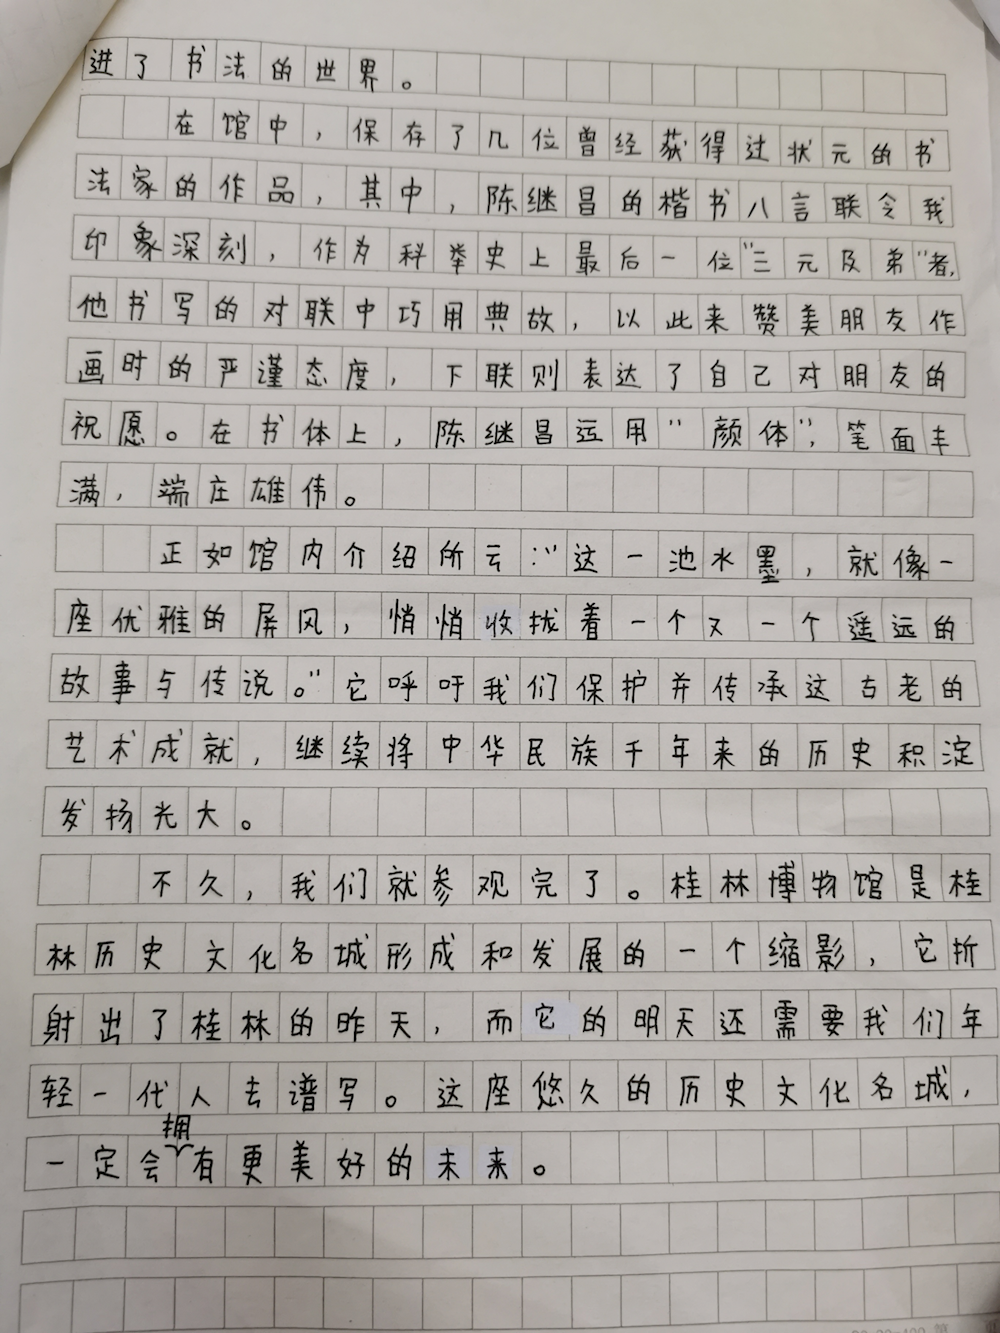 进了书法的世界。
在馆中，保存了几位曾经获得过状元的书
法家的作品，其中，陈继昌的楷书八言联令我
印象深刻，作为科举史上最后一位"三元及弟"者，
他书写的对联中巧用典故，以此来赞美朋友作
画时的严谨态度，下联则表达了自己对朋友的
祝愿。在书体上，陈继昌运用"颜体"，笔画丰
满，端庄雄伟。
正如馆内介绍所云："这一池水墨，就像一
座优雅的屏风，悄悄收拢着一个又一个遥远的
故事与传说。"它呼吁我们保护并传承这古老的
艺术成就，继续将中华民族千年来的历史积淀
发扬光大。
不久，我们就参观完了。桂林博物馆是桂
林历史文化名城形成和发展的一个缩影，它折
射出了桂林的昨天，而它的明天还需要我们年
轻一代人去谱写。这座悠久的历史文化名城，
一定会拥有更美好的未来。